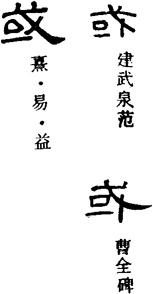 或
建武泉范
或
曹全碑
或
熹·易·益